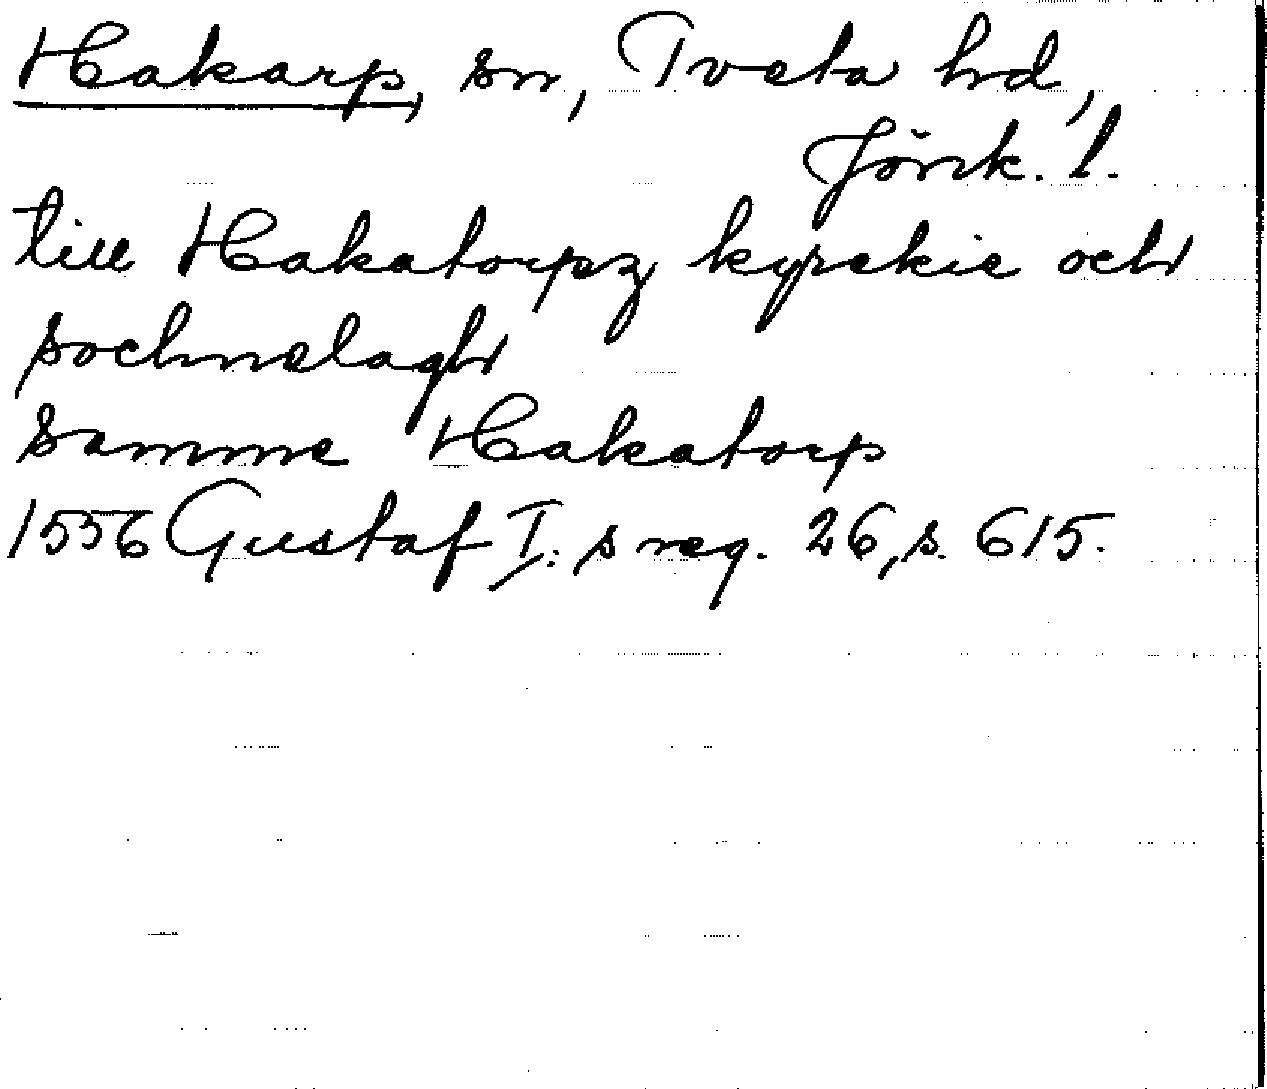 Hakarp, sn, Tveta hd,
Jönk. l.
till Hakatorpz kyrekie och
sochnelagh
samme Hakatorp
1556 Gustaf I:s reg. 26, s. 615.